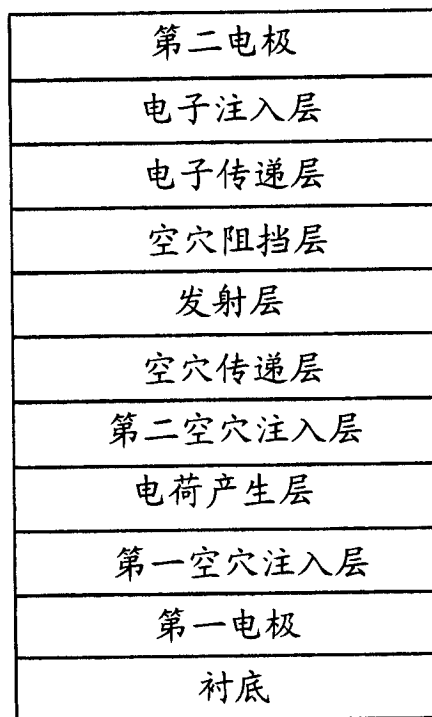 第二电极
电子注入层
电子传递层
空穴阻挡层
发射层
空穴传递层
第二空穴注入层
电荷产生层
第一空穴注入层
第一电极
衬底